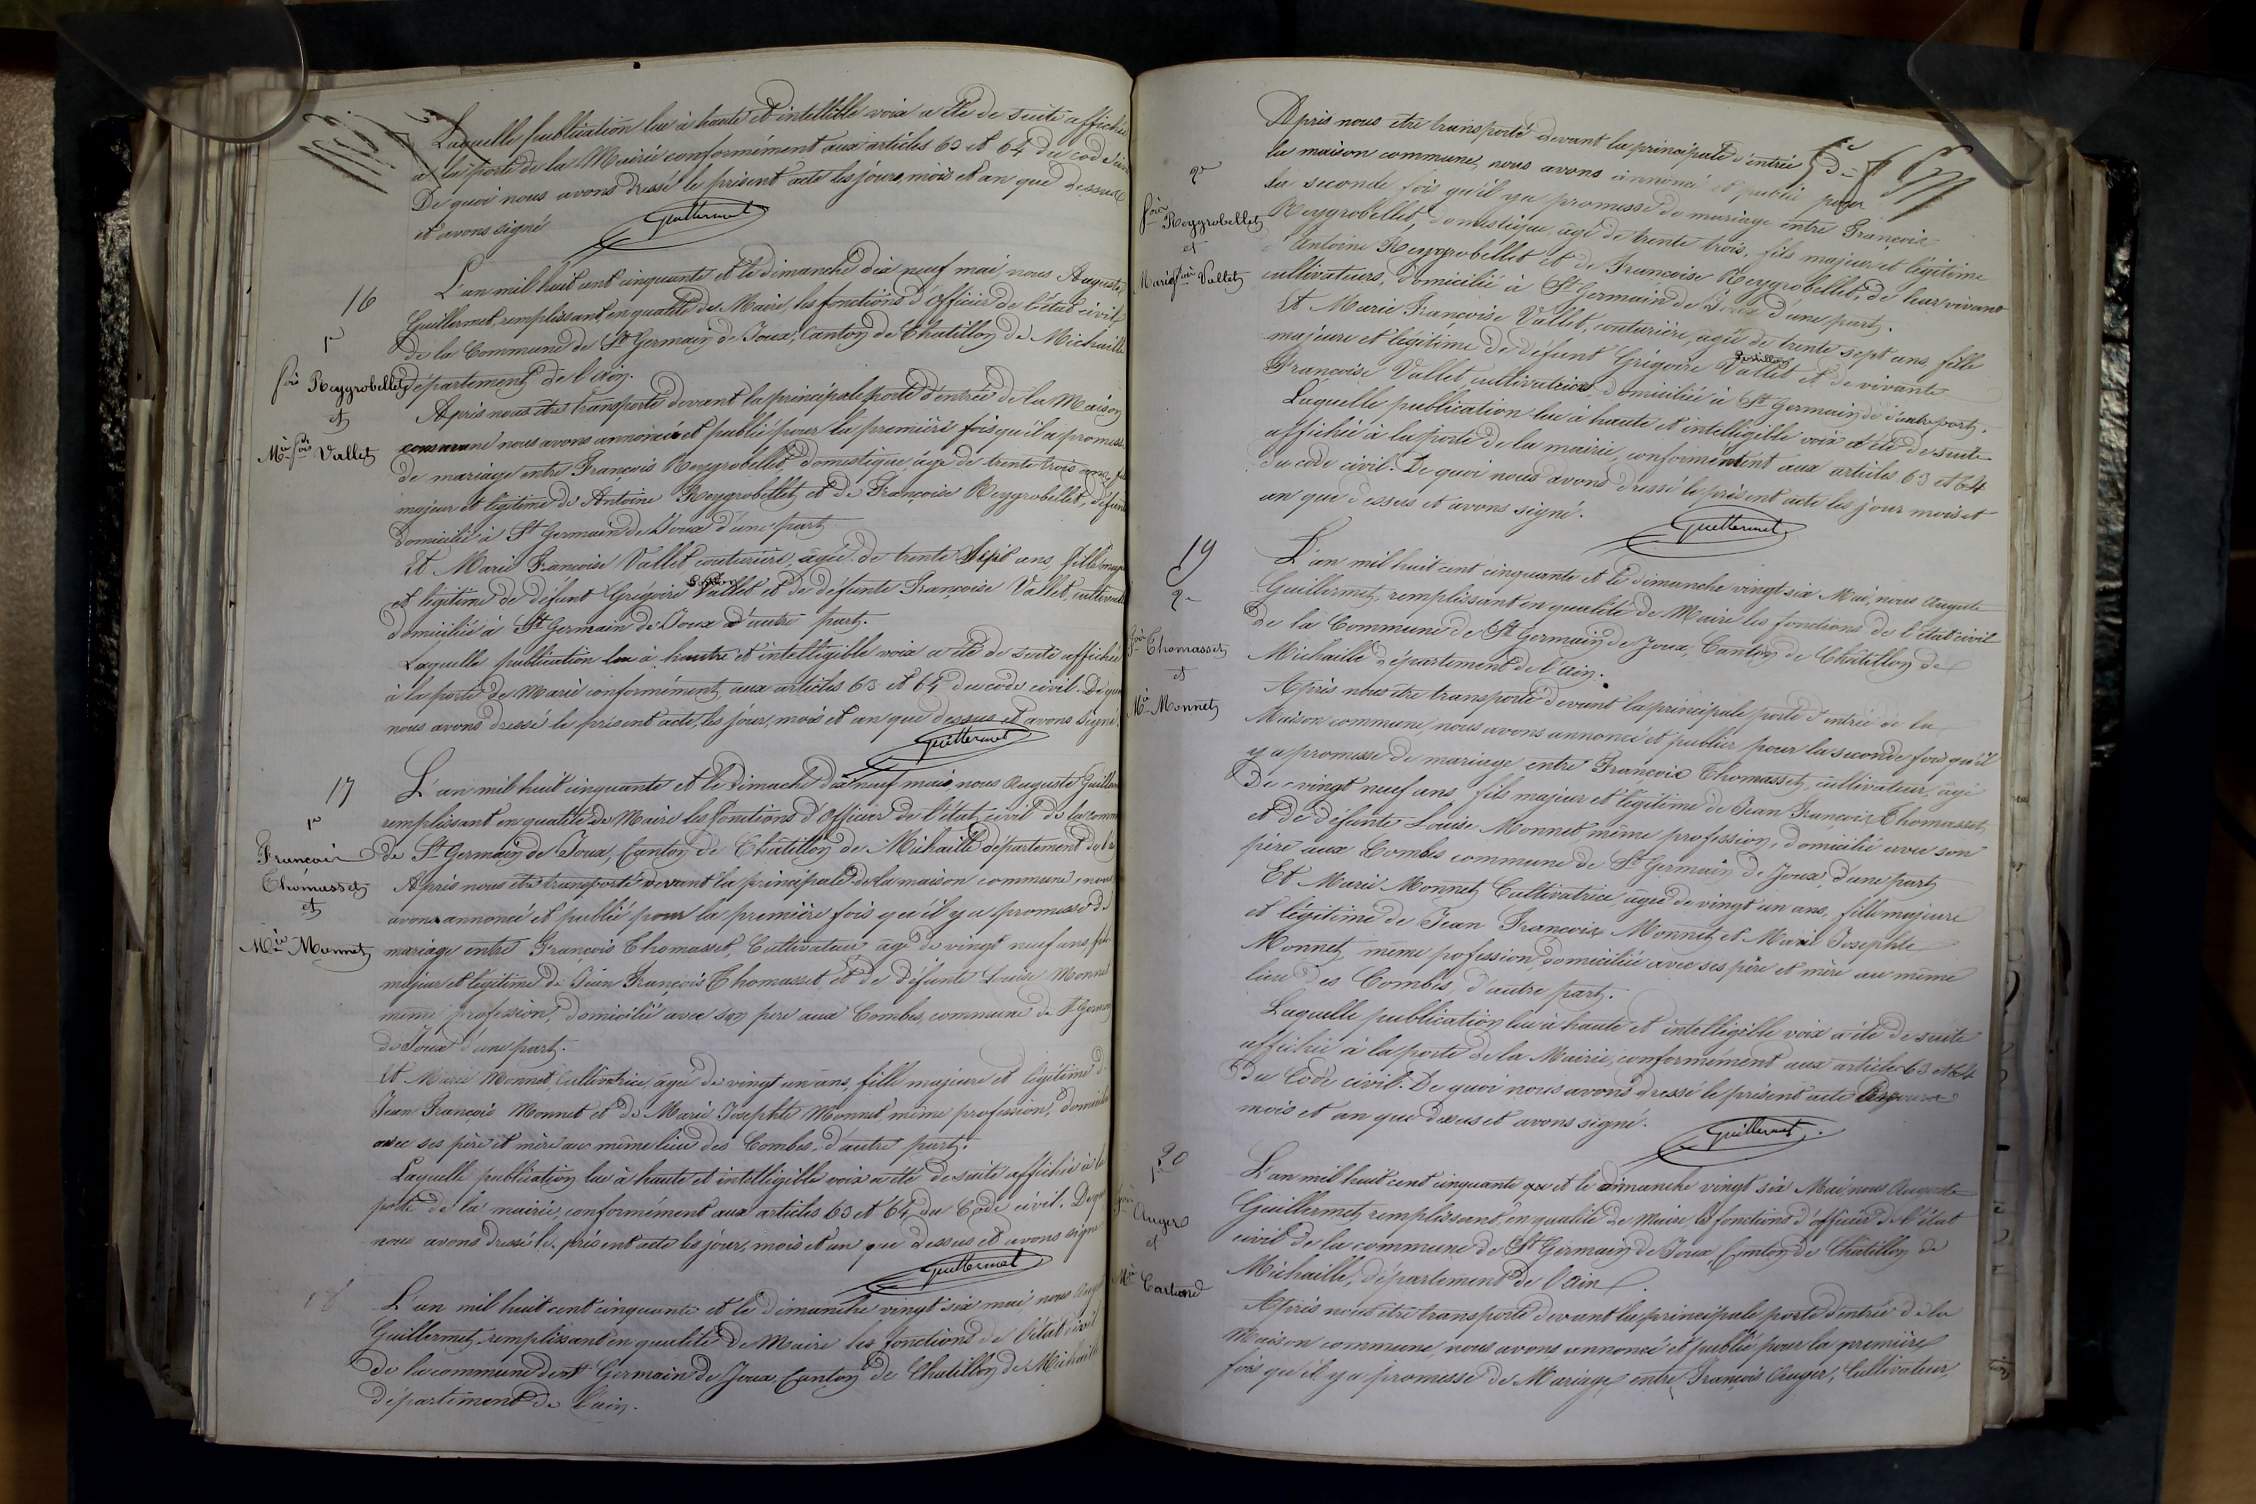 Laquelle publication lue à haute et intellible voix a été de suite affichée
a la porte de la Mairie conformément aux articles 63 et 64 du cod civil
De quoi nous avons dressé le présent acte les jours, mois et an que dessus
et avons signé
Guillermet
16
1r
fois Reygrobellet
et
Mie fse Vallet
L'an mil huit cent cinquante et le dimanche dix neuf mai, nous Auguste
Guillermet, remplissant en qualité de Maire, les fonctions d'Officier de l'état civil
de la Commune de St Germain de Joux, Canton de Chatillon de Michaille
département de l'ain.
Après nous être transporté devant la principale porte d'entrée de la Maison
commune nous avons annoncé et publié pour la première fois qu'il a promesse
de mariage entre François Reygrobellet, domestique, âgé de trente trois ans, fils
majeur et légitime de Antoine Reygrobellet et de Françoise Reygrobellet, défunts
domicilié à St Germain de Joux d'une part
Et Marie Francoise Vallet couturière, agée de trente sept ans, fille maje
et légitime de défunt Grégoire Vallet et de défunte Françoise Vallet, cultivat
domiciliée à St Germain de Joux d'autre part.
Laquelle publication lue à haute et intelligible voix a été de suite affichée
à la porte de Marie conformément aux articles 63 et 64 du code civil. De quoi
nous avons dressé le présent acte, les jour, mois et an que dessus et avons signé.
Guillermet
17
1r
François
Thomasset
et
Mie Monnet
L'an mil huit cinquante et le Dimache dix neuf mai, nous Auguste Guillerm
remplissant en qualité de Maire les fonctions d'Officier de l'état civil de la comm
de St Germain de Joux, Canton de Chatillon de Michaille département de l'a
Après nous être transporté devant la principale de la maison commune, nous
avons annoncé et publié pour la première fois qu'il y a promesse de
mariage entre François Thomasset, Cultivateur âgé de vingt neuf ans, fils
majeur et légitime de Jean François Thomasset et de défunte Louise Monnet
même profession, domicilié avec son pere aux Combes, commune de St Germain
de Joux d'une part.
Et Marie Monnet Cultivatrice, âgée de vingt un ans, fille majeure et légitime d
Jean François Monnet et de Marie Josephte Monnet, même profession, domicili
avec ses père et mère au même lieu des Combes, d'autre part.
Laquelle publication lue à haute et intelligible voix a été de suite affichée à la
porte de la mairie, conformément aux articles 63 et 64 du Code civil. De quoi
nous avons dressé le présent acte les jour, mois et an que dessus et avons signé
Guillermet
18
L'an mil huit cent cinquante et le dimanche vingt six mai nous Aug
Guillermet, remplissant en qualité de Maire les fonctions de l'état civil
de la commune de St Germain de Joux, Canton de Chatillon de Michaille
département de l'ain.
Après nous être transporté devant la principale d'entrée
la maison commune, nous avons annoncé et publié pour
la seconde fois qu'il y a promesse de mariage entre François
Reygrobellet, domestique, âgé de trente trois, fils majeur et légitime
Antoine Reygrobellet et de Françoise Reygrobellet, de leur vivant
cultivateurs, domicilié à St Germain de Joux d'une part.
2e
fois Reygrobellet
et
Marie fse Vallet
Et Marie Francoise Vallet, couturière, agée de trente sept ans, fille
majeure et légitime de défunt Grégoire Vallet et de vivante
Francoise Vallet cultivatrice, domiciliée à St Germain de d'autre part.
Laquelle publication lue à haute et intelligible voix a été de suite
affichée à la porte de la mairie, conformément aux articles 63 et 64
du code civil. De quoi nous avons dressé le présent acte les jour mois et
an que dessus et avons signé.
Guillermet
19
2e
fois Thomasset
et
Mie Monnet
L'an mil huit cent cinquante et le dimanche vingt six Mai, nous Auguste
Guillermet, remplissant en qualité de Maire les fonctions de l'état civil
de la Commune de St Germain de Joux, Canton de Châtillon de
Michaille département de l'ain.
Après nous être transporté devant la principale porte d'entrée de la
Maison commune, nous avons annoncé et publier pour la seconde fois qu'il
y a promesse de mariage entre François Thomasset, cultivateur, âgé
De vingt neuf ans, fils majeur et légitime de Jean François Thomasset,
et de défunte Louise Monnet même profession, domicilié avec son
père aux Combes commune de St Germain de Joux, d'une part
Et Marie Monnet Cultivatrice âgée de vingt un ans, fille majeure
et légitime de Jean François Monnet et Marie Josephte
Monnet, même pofession, domiciliée avec ses père et mère au même
lieu des Combes, d'autre part.
Laquelle publication lue à haute et intelligible voix a été de suite
affichée à la porte de la Mairie, conformément aux articles 63 et 64
Du Code civil. De quoi nous avons dressé le présent acte les jours
mois et an que dessus et avons signé.
Guillermet
20
1r
fois Auger
et
Mie
L'an mil huit cent cinquante et le dimanche vingt six Mai, nous Auguste
Guillermet, remplissant, en qualité de Maire, les fonctions d'officier de l'état
civil de la commune de St Germain de Joux, Canton de Châtillon de
Michaille, département de l'ain.
Après nous être transporté devant la principale porte d'entrée de la
Maison commune nous avons annoncé et publié pour la première
fois qu'il y a promesse de Mariage entre François Auger, Cultivateur,